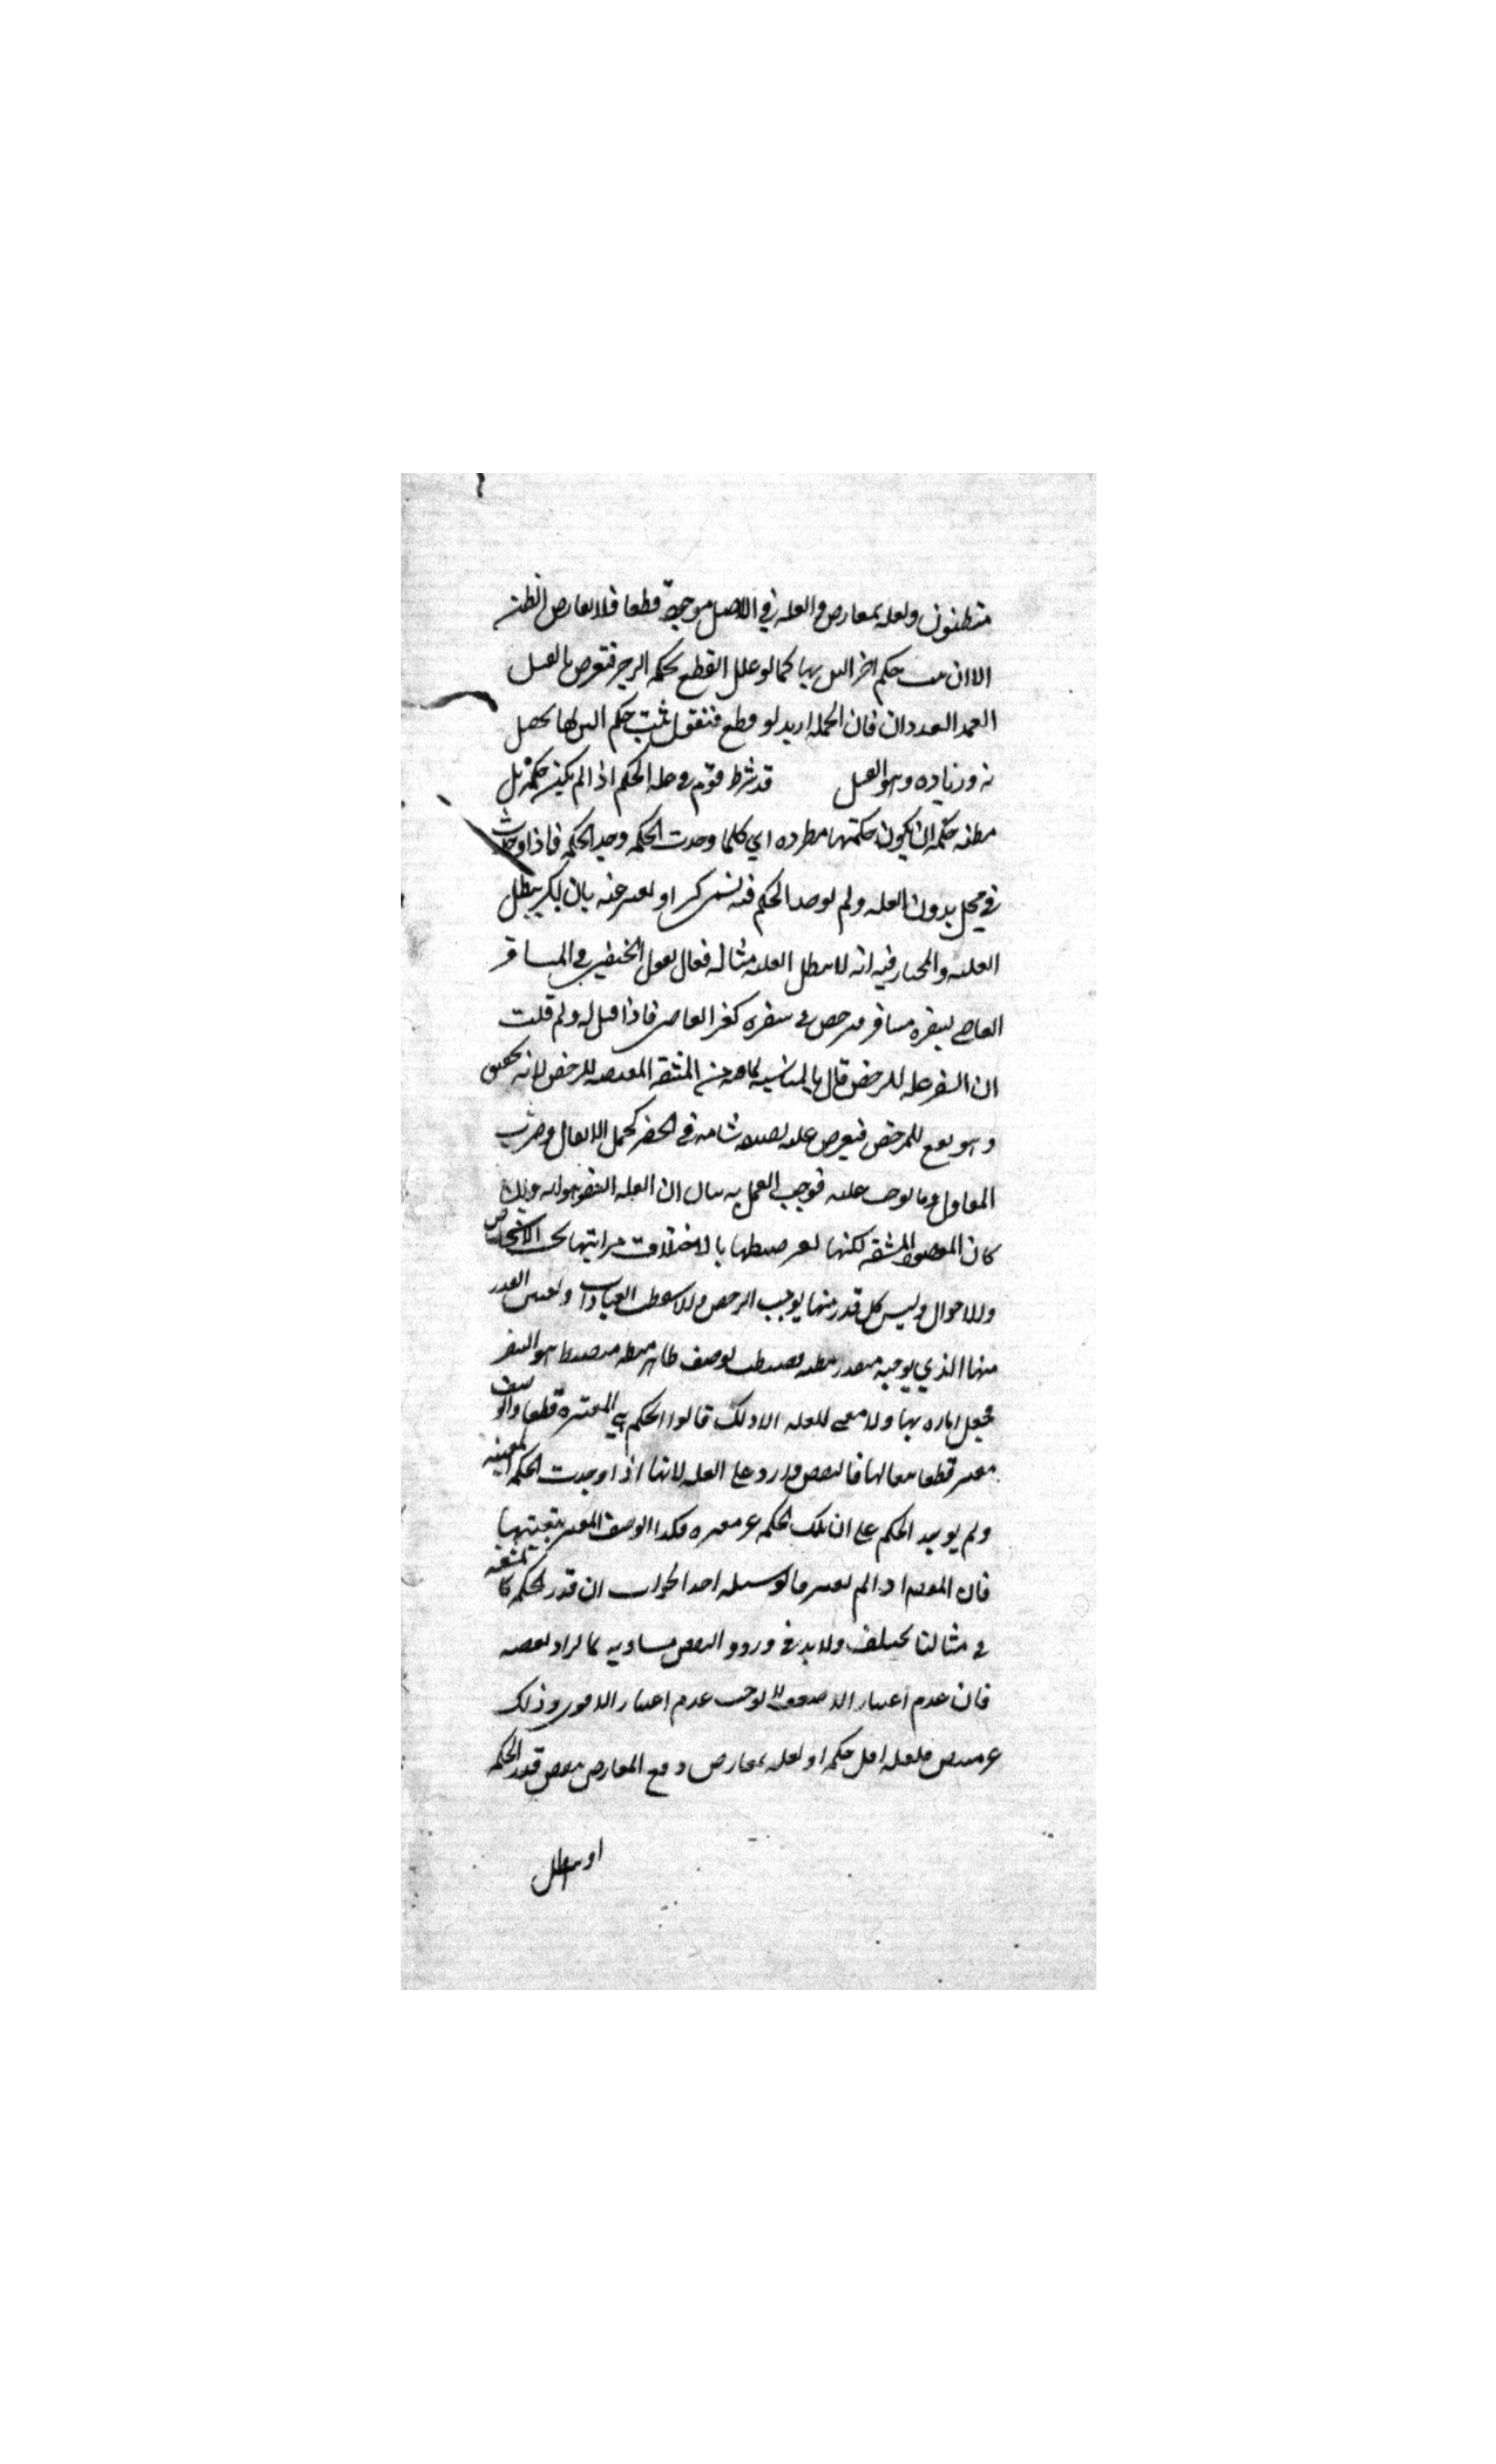 مظنون ولعله لمعارض والعلة في الاصل موجودة قطعا فلا يعارض الظن
الا ان يثبت حكم اخر اليق بها كما لو علل القطع بحكمة الزجر فتعرض بالقتل
العمد العدوان فان الحكمة ازيد لو قطع فنقول ثبت حكم اليق بها يحصل
به وزيادة وهو القتل قد شرط قوم في علة الحكم اذا لم يكن حكمة بل
مظنة حكمة ان يكون حكمتها مطردة اي كلما وجدت الحكمة وجد الحكم فاذا وجدت
في محل بدون العلة ولم يوجد الحكم فيه يسمى كسرا ويعبر عنه بان الكسر يبطل
العلية والمختار فيه انه لا يبطل العلية مثاله فعال يقول الحنفي في المسافر
العاصي بسفره مسافر فيترخص في سفره كغير العاصي فاذا قيل له ولم قلت
ان السفر علة للترخص قال بالمناسبة لما فيه من المشقة المقتضية للترخص لانه تخفيف
وهو نفع للمرخص فيعترض عليه بصنعة شاقة في الحضر كحمل الاثقال وضرب
المعاول وما يوجب عليه فوجب العمل به بيان ان العلة السفر هو انه وان
كان المقصود المشقة لكنها يعسر ضبطها بالاختلاف مراتبها بحسب الاشخاص
والاحوال وليس كل قدر منها يوجب الترخص والا سقطت العبادات وتعيين القدر
منها الذي يوجبه متعذر فضبطت بوصف ظاهر منضبط هو السفر
فجعل امارة بها ولا معنى للعلة الا ذلك قالوا الحكم هي المعتبرة قطعا والوصف
معتبر قطعا تبعا لها فالنقض وارد على العلة لانها اذا وجدت الحكمة المعينة
ولم يوجد الحكم علم ان تلك الحكمة غير معتبرة فكذا الوصف المعتبر بتبعيتها
فان المقصود اذا لم يعتبر فالوسيلة اجدر الجواب ان قدر الحكمة كالمشقة
في مثالنا يختلف ولا بد في ورود النقض مساويه لما يراد نقضه
فان عدم اعتبار الاضعف لا يوجب عدم اعتبار الاقوى وذلك
غير متيقن فلعله اقل حكمة او لعله لمعارض ومع المعارض ينقص قدر الحكمة
او يبطل